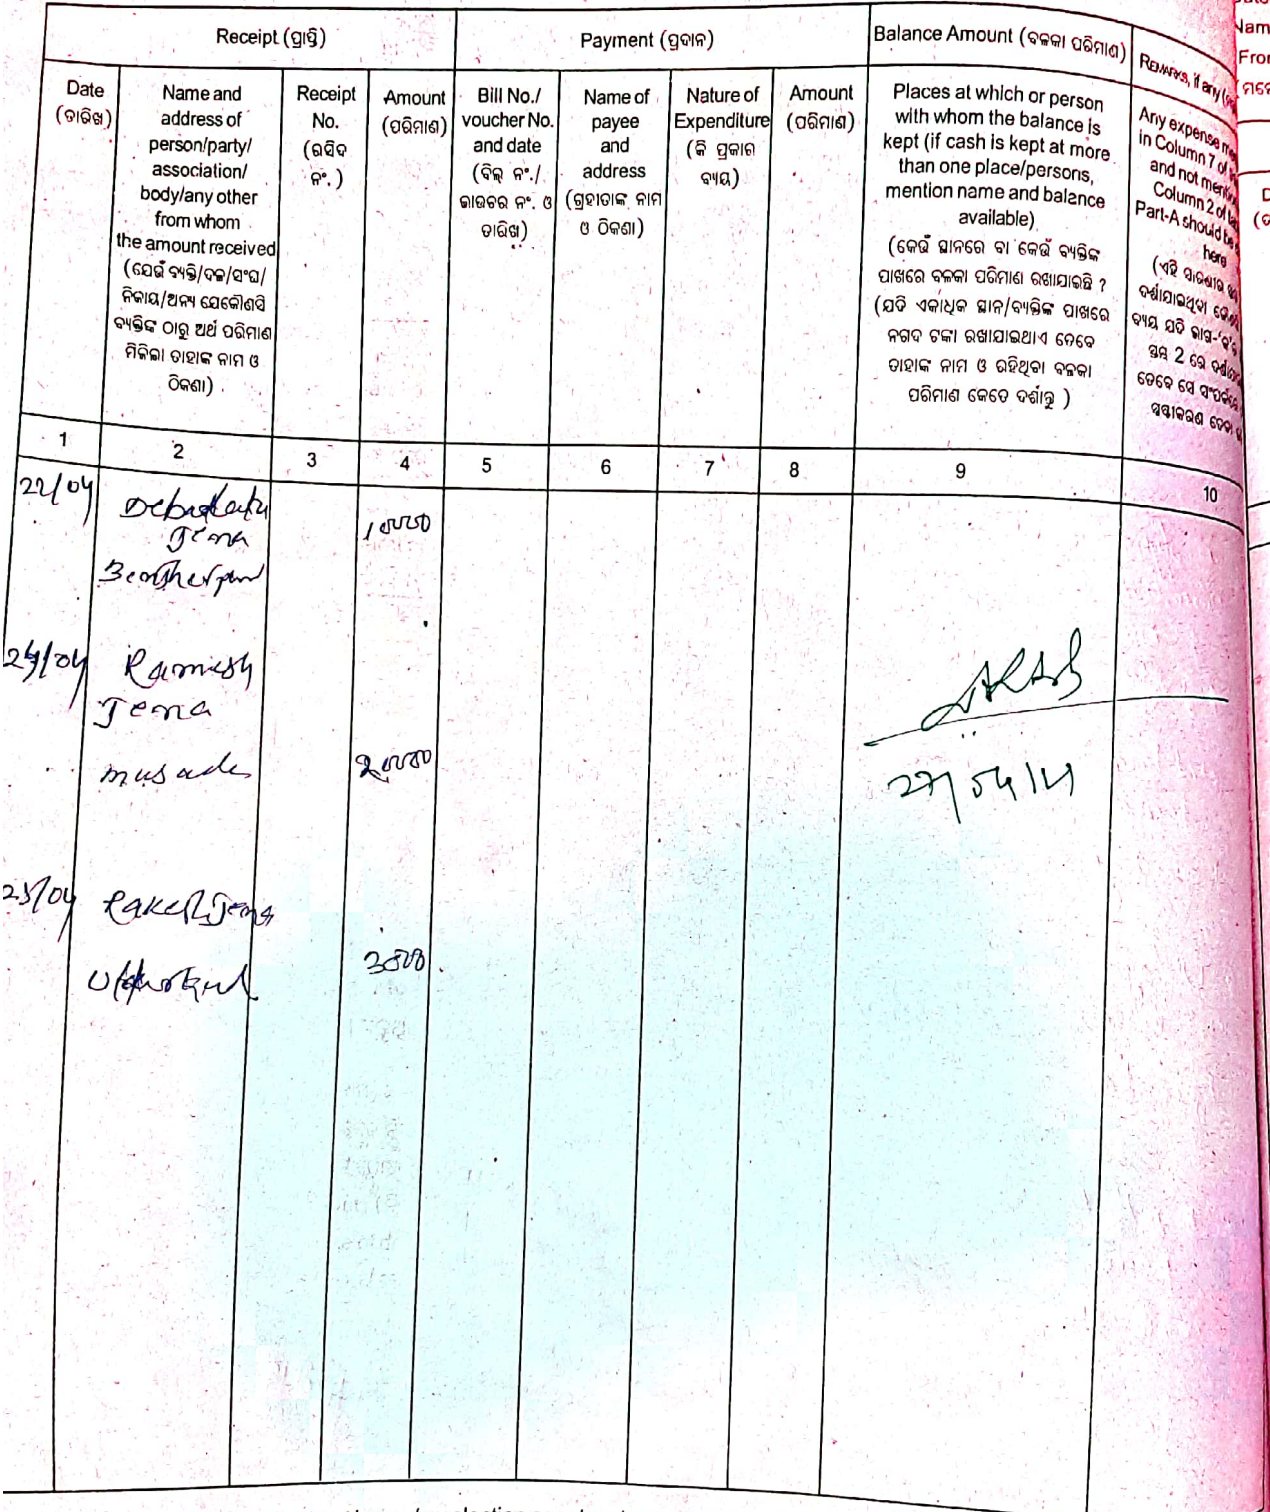 Receipt (ପ୍ରାପ୍ତି)
Payment (ପ୍ରଦାନ)
Balance Amount (ବଳକା ପରିମାଣ)
Remarks, if any
Date
(ତାରିଖ)
Name and
address of
person/party/
association/
body/any other
from whom
the amount received
(ଯେଉଁ ବ୍ୟକ୍ତି/ଦଳ/ସଂଘ/
ନିକାୟ/ଅନ୍ୟ ଯେକୌଣସି
ବ୍ୟକ୍ତିଙ୍କ ଠାରୁ ଅର୍ଥ ପରିମାଣ
ମିଳିଲା ତାହାଙ୍କ ନାମ ଓ
ଠିକଣା)
Receipt
No.
(ରସିଦ
ନଂ.)
Amount
(ପରିମାଣ)
Bill No./
voucher No.
and date
(ବିଲ୍ ନଂ./
ଭାଉଚର ନଂ. ଓ
ତାରିଖ)
Name of
payee
and
address
(ଗ୍ରହୀତାଙ୍କ ନାମ
ଓ ଠିକଣା)
Nature of
Expenditure
(କି ପ୍ରକାର
ବ୍ୟୟ)
Amount
(ପରିମାଣ)
Places at which or person
with whom the balance is
kept (if cash is kept at more
than one place/persons,
mention name and balance
available)
(କେଉଁ ସ୍ଥାନରେ ବା କେଉଁ ବ୍ୟକ୍ତିଙ୍କ
ପାଖରେ ବଳକା ପରିମାଣ ରଖାଯାଇଛି ?
(ଯଦି ଏକାଧିକ ସ୍ଥାନ/ବ୍ୟକ୍ତିଙ୍କ ପାଖରେ
ନଗଦ ଟଙ୍କା ରଖାଯାଇଥାଏ ତେବେ
ତାହାଙ୍କ ନାମ ଓ ରହିଥିବା ବଳକା
ପରିମାଣ କେତେ ଦର୍ଶାନ୍ତୁ )
Any expense
in Column 7 of
and not
Column 2 of
Part-A should be
here
(ଏହି ସାରଣୀର
ଦର୍ଶାଯାଇଥିବା
ବ୍ୟୟ ଯଦି ଭାଗ-'କ'ର
ସ୍ତମ୍ଭ 2 ରେ
ତେବେ ସେ
ସ୍ପଷ୍ଟୀକରଣ ଦେବା
1 2 3 4 5 6 7 8 9 10
22/04
Jena
10000
24/04 Ramesh
Jena
2000
25/04 Rakesh Jena
3000
27/04/24